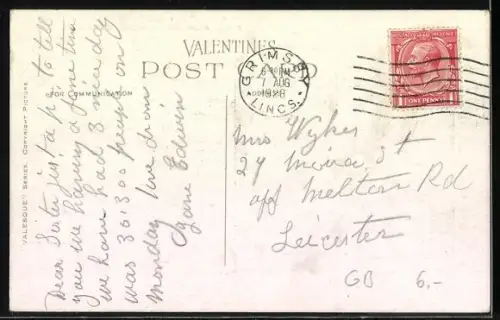 VALENTINES
POST CARD
FOR COMMUNICATION
"VALESQUE" SERIES. COPYRIGHT PICTURE.
GRIMSBY
7 AUG
1928
LINCS.
ONE PENNY
Dear Sister just a p.c to tell
you we having a fine time
we have had 3 nice day
was 30,300 people on
Monday love from
Edwin
Mrs Wykes
27 Moira St
off Melton Rd
Leicester
GB 6,-